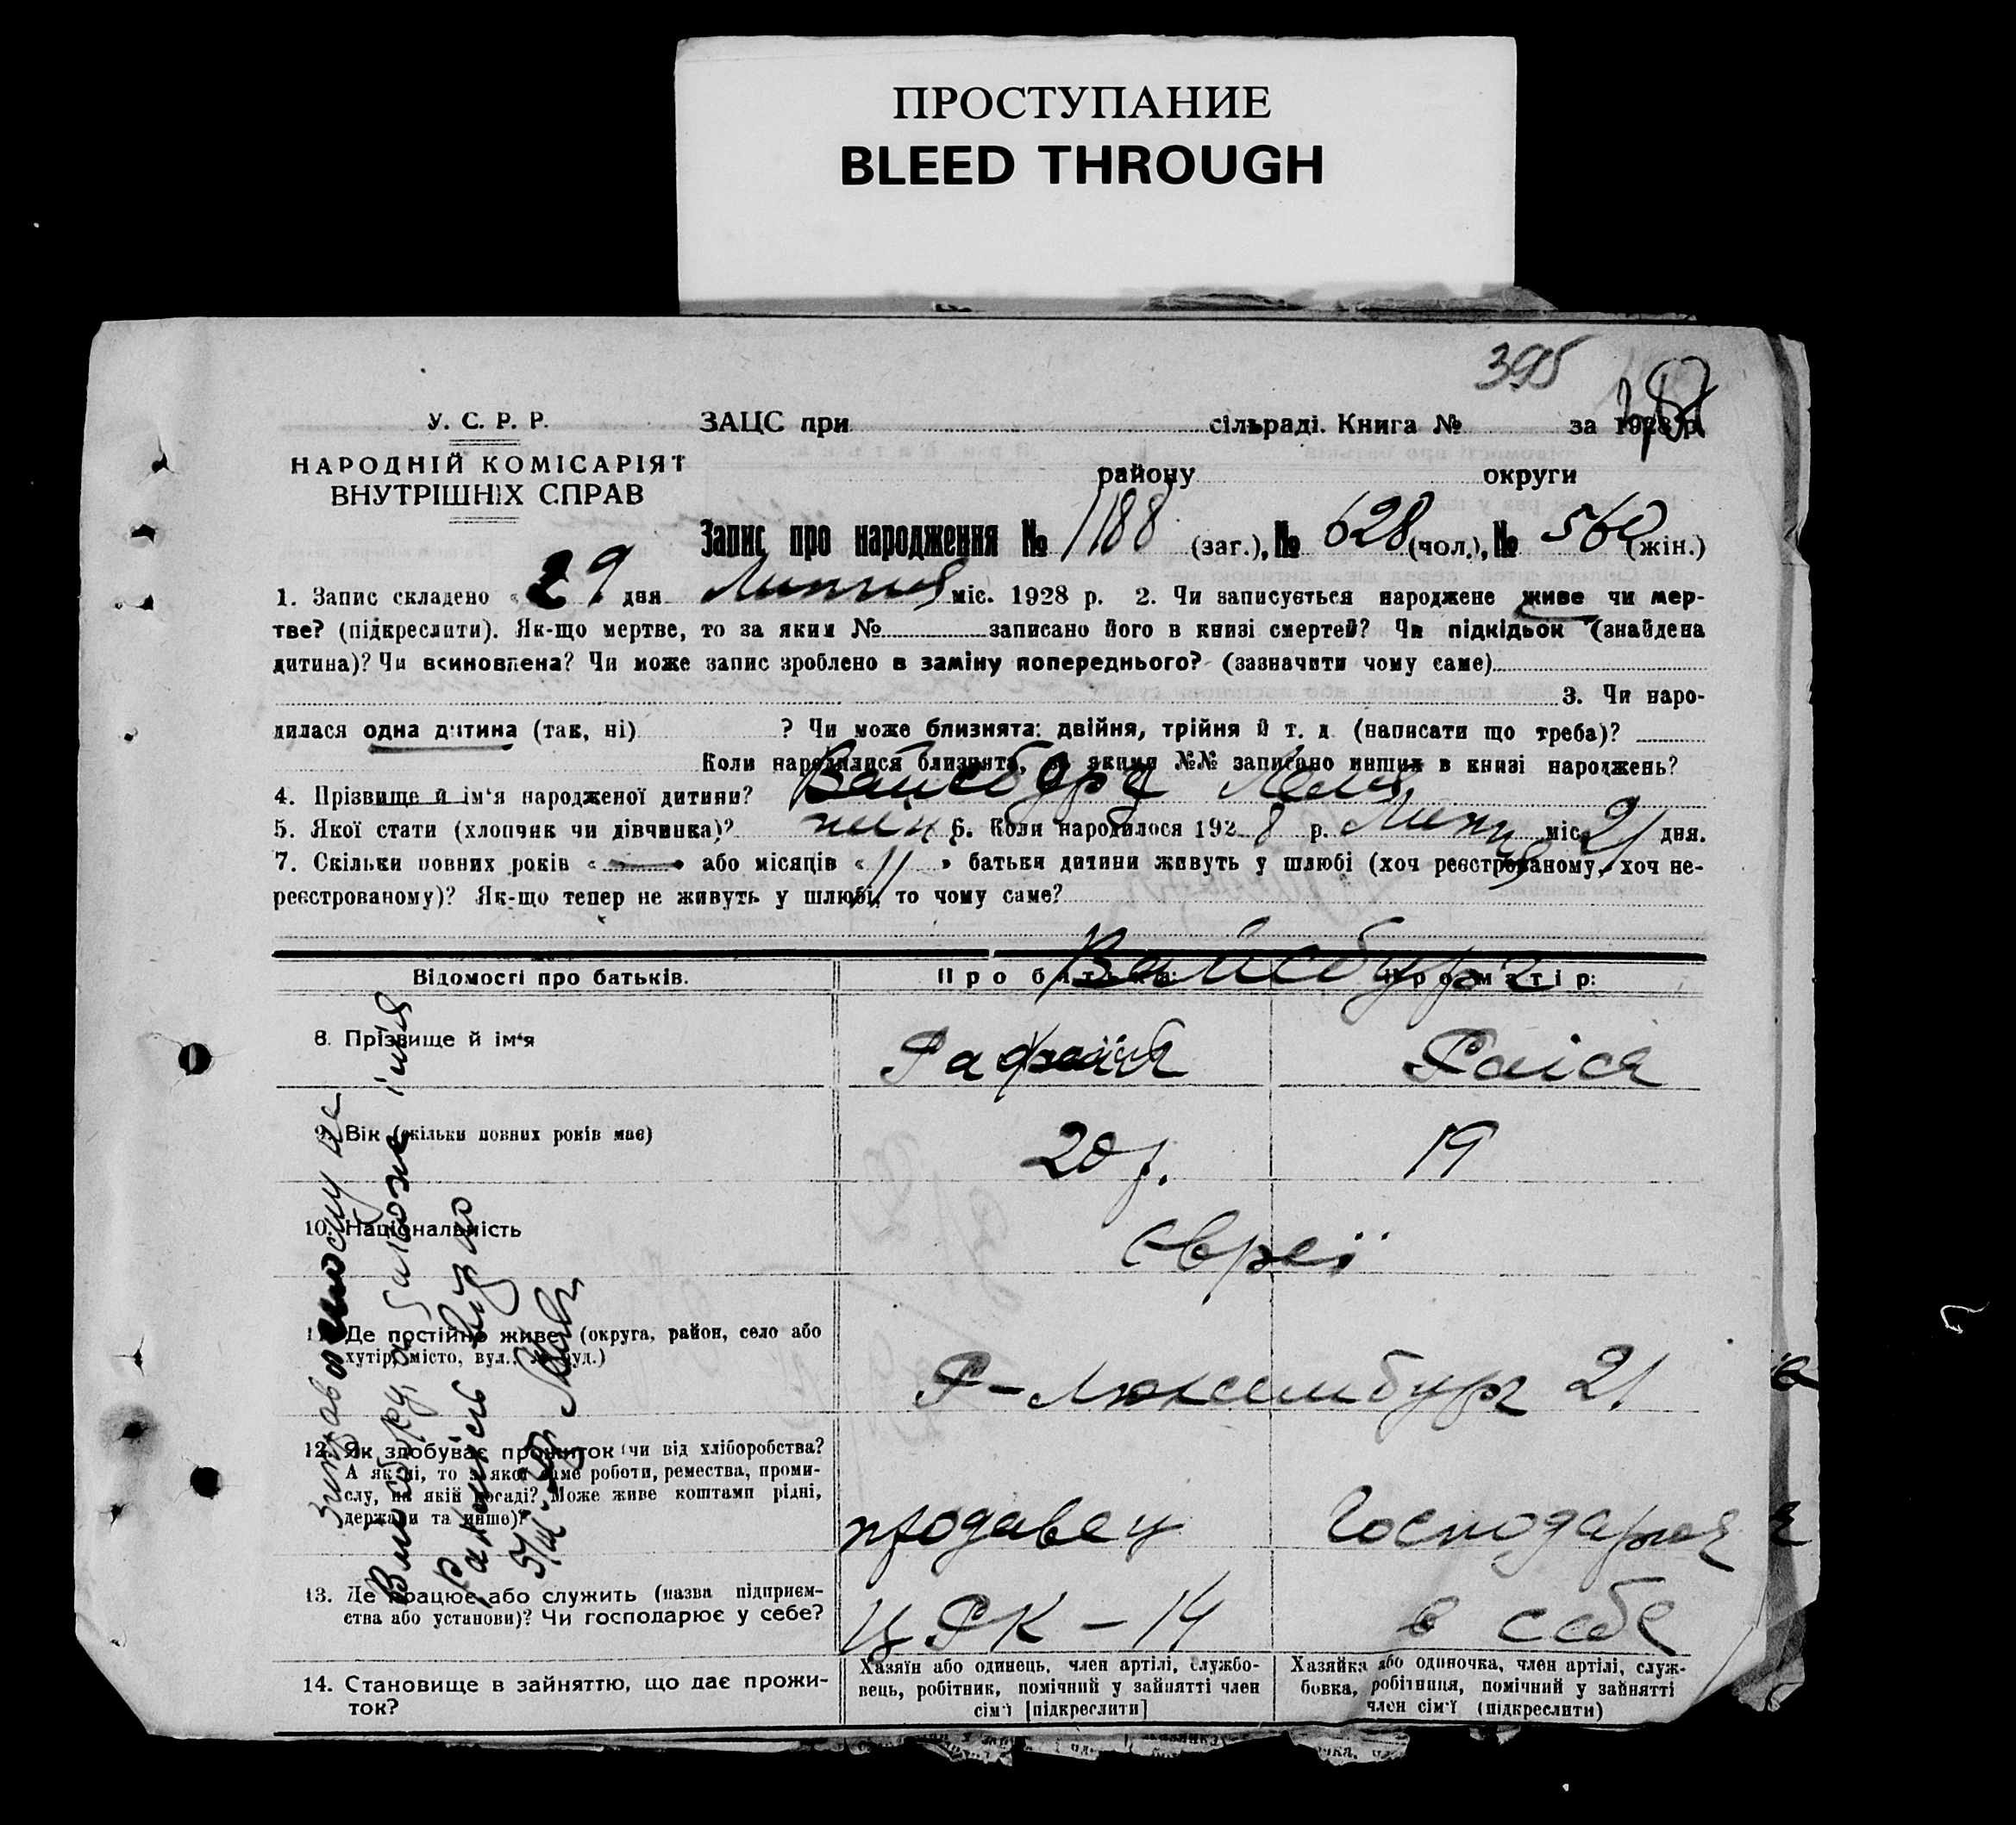 ПРОСТУПАНИЕ
BLEED THROUGH
395
У. С. Р. Р.
НАРОДНІЙ КОМІСАРІЯТ
ВНУТРІШНІХ СПРАВ
ЗАЦС при сільраді. Книга № за 1928 р.
району округи
Запис про народження № 1188 (заг.), № 628 (чол.), № 560 (жін.)
1. Запис складено « 29 дня Липня міс. 1928 р. 2. Чи записується народжене живе чи мер-
тве? (підкреслити). Як-що мертве, то за яким № записано його в книзі смертей? Чи підкідьок (знайдена
дитина)? Чи всиновлена? Чи може запис зроблено в заміну попереднього? (зазначити чому саме)
3. Чи наро-
дилася одна дитина (так, ні) ? Чи може близнята: двійня, трійня й т. д. (написати що треба)?
Коли народилися близнята, за якими №№ записано инших в книзі народжень?
4. Прізвище й ім‘я народженої дитини? Вайсбург Леля
5. Якої стати (хлопчик чи дівчинка)? 6. Коли народилося 1928 р. Липня міс. 21 дня.
7. Скільки повних років « — » або місяців « 11 » батьки дитини живуть у шлюбі (хоч реєстрованому, хоч не-
реєстрованому)? Як-що тепер не живуть у шлюбі, то чому саме?
Вайсбург
Відомості про батьків. Про батька: Про матір:
8. Прізвище й ім‘я Рафаїл Раіса
9. Вік (скільки повних років має) 20 р. 19
10. Національність Євреї
11. Де постійно живе (округа, район, село або
хутір, місто, вул., № буд.)
Р-Люксембург 21
12. Як здобуває прожиток (чи від хліборобства?
А як ні, то з якої саме роботи, ремества, проми-
слу, на якій посаді? Може живе коштами рідні,
держави та инше)?
продавец Господарня
13. Де працює або служить (назва підприєм-
ства або установи)? Чи господарює у себе?
ЦРК - 14 в себе
14. Становище в зайняттю, що дає прожи-
ток?
Хазяїн або одинець, член артілі, службо-
вець, робітник, помічний у зайнятті член
сім‘ї [підкреслити]
Хазяйка або одиночка, член артілі, служ-
бовка, робітниця, помічний у зайнятті
член сім‘ї (підкреслити)